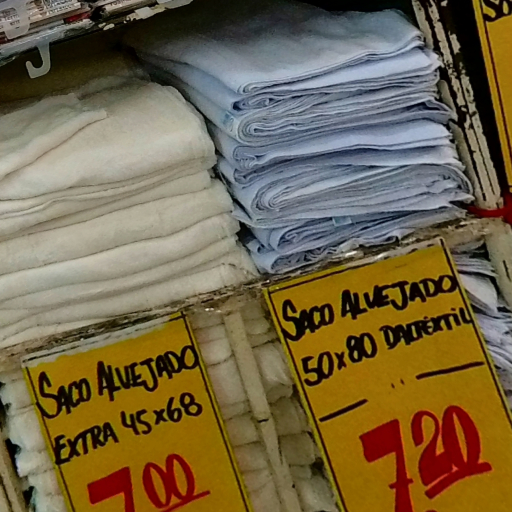 SACO ALVEJADO
EXTRA 45x68
7,00
SACO ALVEJADO
50x80 DALTÊXTIL
7,20